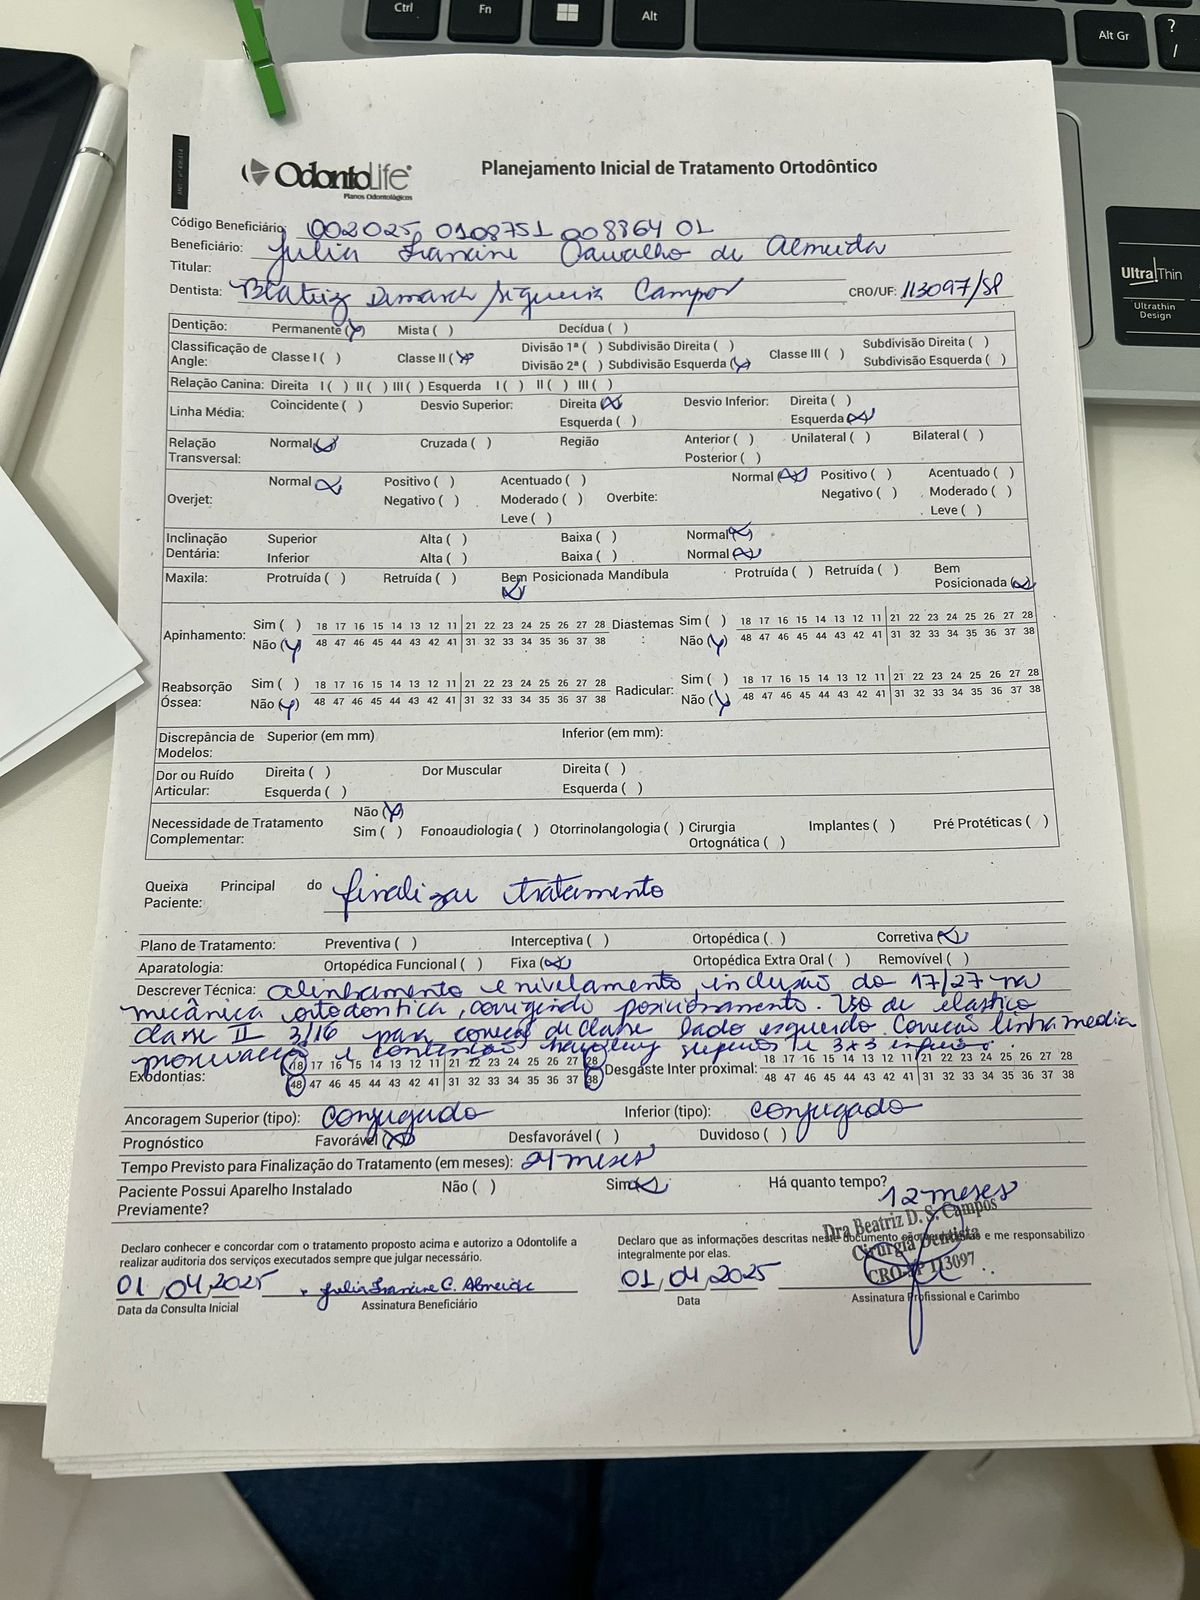 Ctrl Fn Alt Alt Gr ? /
OdontoLife
Planos Odontológicos
Planejamento Inicial de Tratamento Ortodôntico
Ultra Thin
Ultrathin Design
Código Beneficiário: 002025 0108751 008364 01
Beneficiário: Julia Francine Carvalho de Almeida
Titular:
Dentista: Beatriz Dimarch Siqueira Campos CRO/UF: 113097/SP
Dentição: Permanente (x) Mista ( ) Decídua ( )
Classificação de Angle: Classe I ( ) Classe II (x) Divisão 1ª ( ) Subdivisão Direita ( ) Classe III ( ) Subdivisão Direita ( )
Divisão 2ª ( ) Subdivisão Esquerda (x) Subdivisão Esquerda ( )
Relação Canina: Direita I ( ) II ( ) III ( ) Esquerda I ( ) II ( ) III ( )
Linha Média: Coincidente ( ) Desvio Superior: Direita (x) Desvio Inferior: Direita ( )
Esquerda ( ) Esquerda (x)
Relação Transversal: Normal (x) Cruzada ( ) Região Anterior ( ) Unilateral ( ) Bilateral ( )
Posterior ( )
Overjet: Normal (x) Positivo ( ) Acentuado ( ) Overbite: Normal (x) Positivo ( ) Acentuado ( )
Negativo ( ) Moderado ( ) Negativo ( ) Moderado ( )
Leve ( ) Leve ( )
Inclinação Dentária: Superior Alta ( ) Baixa ( ) Normal (x)
Inferior Alta ( ) Baixa ( ) Normal (x)
Maxila: Protruída ( ) Retruída ( ) Bem Posicionada (x) Mandíbula Protruída ( ) Retruída ( ) Bem Posicionada (x)
Apinhamento: Sim ( ) 18 17 16 15 14 13 12 11 21 22 23 24 25 26 27 28 Diastemas: Sim ( ) 18 17 16 15 14 13 12 11 21 22 23 24 25 26 27 28
Não (x) 48 47 46 45 44 43 42 41 31 32 33 34 35 36 37 38 Não (x) 48 47 46 45 44 43 42 41 31 32 33 34 35 36 37 38
Reabsorção Óssea: Sim ( ) 18 17 16 15 14 13 12 11 21 22 23 24 25 26 27 28 Radicular: Sim ( ) 18 17 16 15 14 13 12 11 21 22 23 24 25 26 27 28
Não (x) 48 47 46 45 44 43 42 41 31 32 33 34 35 36 37 38 Não (x) 48 47 46 45 44 43 42 41 31 32 33 34 35 36 37 38
Discrepância de Modelos: Superior (em mm) Inferior (em mm):
Dor ou Ruído Articular: Direita ( ) Dor Muscular Direita ( )
Esquerda ( ) Esquerda ( )
Necessidade de Tratamento Complementar: Não (x)
Sim ( ) Fonoaudiologia ( ) Otorrinolangologia ( ) Cirurgia Ortognática ( ) Implantes ( ) Pré Protéticas ( )
Queixa Principal do Paciente: finalizar tratamento
Plano de Tratamento: Preventiva ( ) Interceptiva ( ) Ortopédica ( ) Corretiva (x)
Aparatologia: Ortopédica Funcional ( ) Fixa (x) Ortopédica Extra Oral ( ) Removível ( )
Descrever Técnica: alinhamento e nivelamento, inclusão do 17/27 na
mecânica ortodontica, corrigindo posicionamento. Uso de elastico
classe II 3/16 para correção de classe lado esquerdo. Correção linha media
proservação e contensão hawley superior e 3x3 inferior.
Exodontias: 18 17 16 15 14 13 12 11 21 22 23 24 25 26 27 28 Desgaste Inter proximal: 18 17 16 15 14 13 12 11 21 22 23 24 25 26 27 28
48 47 46 45 44 43 42 41 31 32 33 34 35 36 37 38 48 47 46 45 44 43 42 41 31 32 33 34 35 36 37 38
Ancoragem Superior (tipo): conjugado Inferior (tipo): conjugado
Prognóstico Favorável (x) Desfavorável ( ) Duvidoso ( )
Tempo Previsto para Finalização do Tratamento (em meses): 24 meses
Paciente Possui Aparelho Instalado Previamente? Não ( ) Sim (x) Há quanto tempo? 12 meses
Declaro conhecer e concordar com o tratamento proposto acima e autorizo a Odontolife a
realizar auditoria dos serviços executados sempre que julgar necessário.
Declaro que as informações descritas neste documento são e me responsabilizo
integralmente por elas.
Dra Beatriz D. S. Campos
Cirurgiã Dentista
CRO-SP 113097
01/04/2025 Julia Francine C. Almeida 01/04/2025
Data da Consulta Inicial Assinatura Beneficiário Data Assinatura Profissional e Carimbo